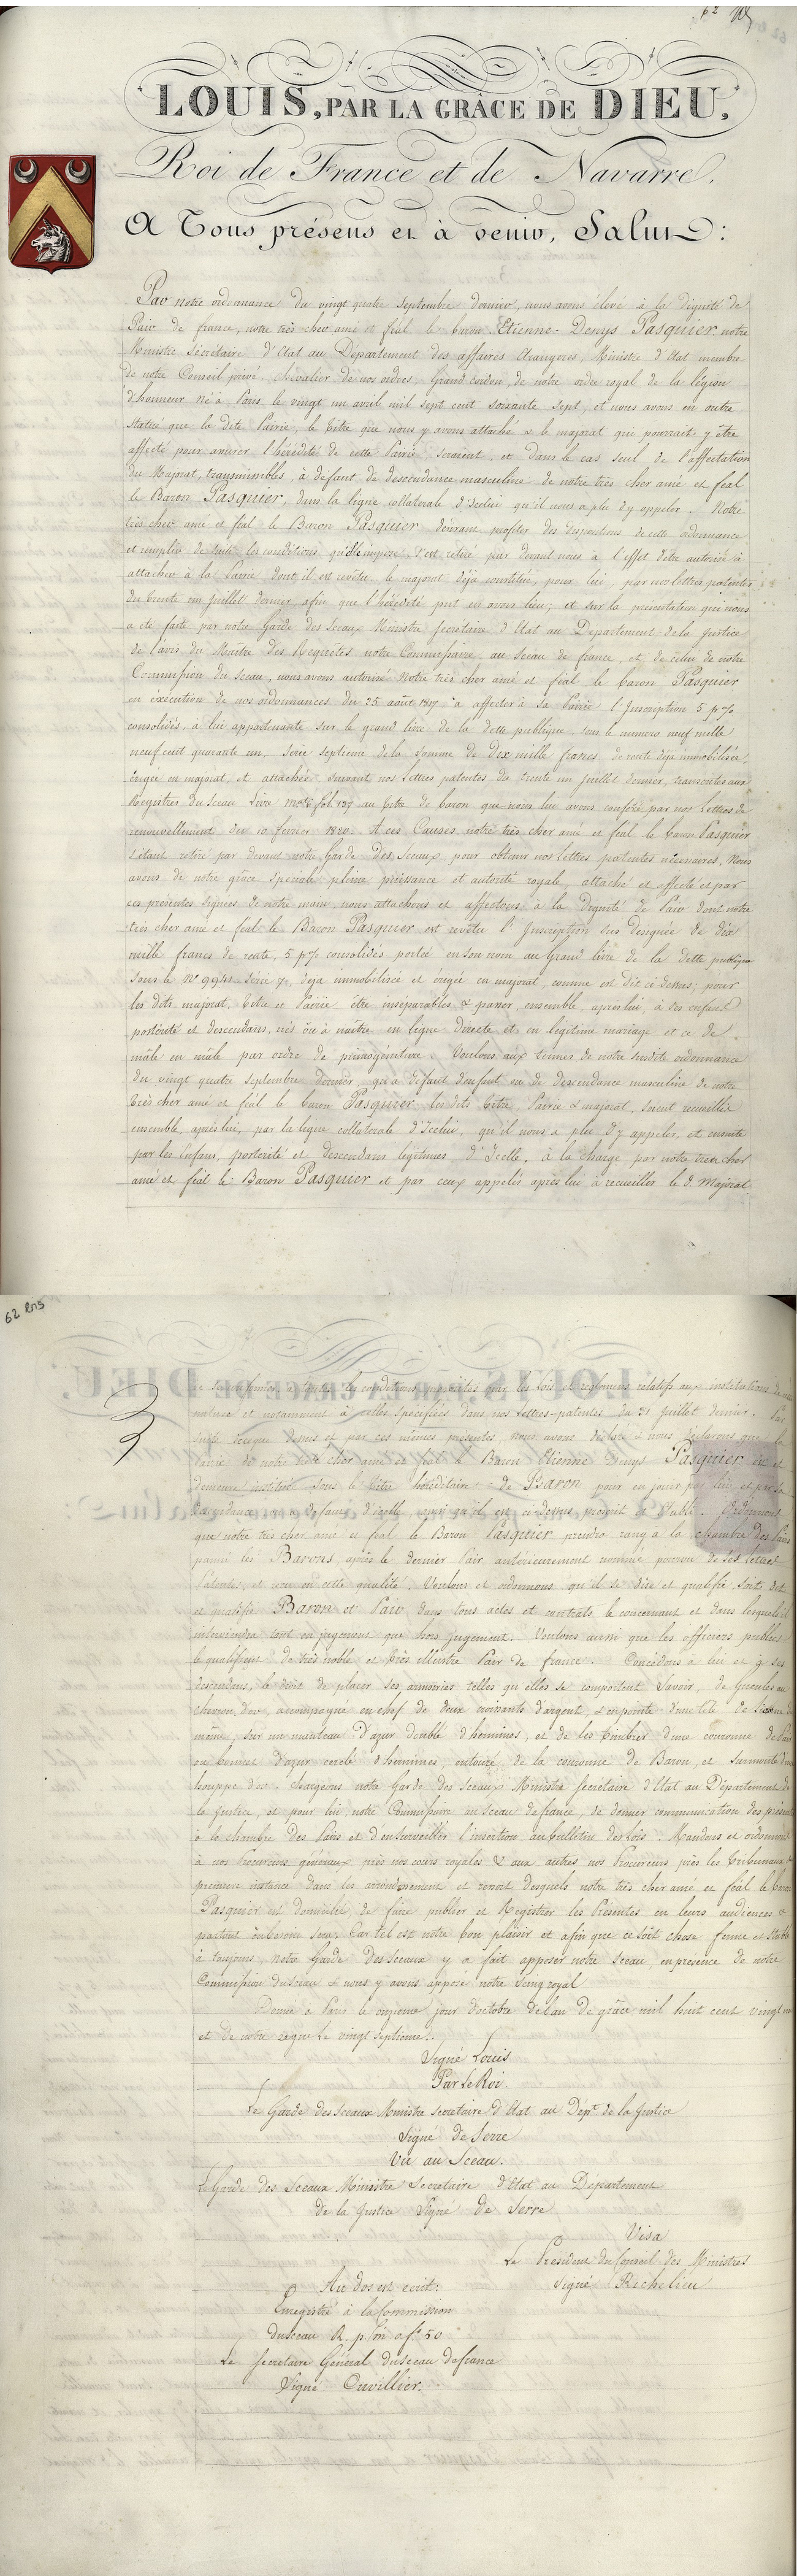 62
LOUIS, PAR LA GRÂCE DE DIEU,
Roi de France et de Navarre,
A Tous présens et à venir, Salut :
Par notre ordonnance du vingt quatre Septembre dernier, nous avons élevé à la dignité de
Pair de france, notre très cher amé et féal le baron Etienne-Denys Pasquier notre
Ministre Sécrétaire d'Etat au Département des affaires étrangeres, Ministre d'Etat membre
de notre Conseil privé, chevalier de nos ordres, Grand cordon, de notre ordre royal de la légion
d'honneur né à Paris le vingt un avril mil sept cent soixante sept, et nous avons en outre
statué que la dite Pairie, le titre que nous y avons attaché & le majorat qui pourrait y être
affecté pour assurer l'hérédité de cette Pairie seraient, et dans le cas seul de l'affectation
du Majorat, transmissibles, à défaut de descendance masculine de notre très cher amé et féal
le Baron Pasquier, dans la ligne collatérale d'icelui qu'il nous a plu d'y appeler. Notre
très cher amé et féal le Baron Pasquier désirant profiter des dispositions de cette ordonnance
et remplir de suite les conditions qu'elle impose s'est retiré par devant nous à l'effet d'être autorisé à
attacher à la Pairie dont il est revêtu, le majorat déjà constitué, pour lui, par nos lettres patentes
du trente un juillet dernier afin que l'hérédité put en avoir lieu; et sur la présentation qui nous
a été faite par notre Garde des Sceaux Ministre Secrétaire d'Etat au Département de la Justice
de l'avis du Maître des Requêtes notre Commissaire au Sceau de france, et de celui de notre
Commission du Sceau, nous avons autorisé notre très cher amé et féal le baron Pasquier
en exécution de nos ordonnances du 25 août 1817 à affecter à sa Pairie l'Inscription 5 p %
consolidés, à lui appartenante sur le grand livre de la dette publique, sous le numero neuf mille
neuf cent quarante un, série septieme de la somme de dix mille francs de rente déjà immobilisée,
érigée en majorat, et attachée, suivant nos lettres patentes du trente un juillet dernier, transcrites aux
Registres du Sceau Livre fol. 137 au titre de baron que nous lui avons conféré par nos Lettres de
renouvellement du 10 février 1820. A ces Causes notre très cher amé et féal le baron Pasquier
s'étant retiré par devant notre Garde des Sceaux, pour obtenir nos lettres patentes nécessaires, Nous
avons de notre grâce spéciale pleine puissance et autorité royale, attaché et affecté et par
ces présentes signées de notre main, nous attachons et affectons à la Dignité de Pair dont notre
très cher amé et féal le Baron Pasquier est revêtu l'Inscription sus désignée de dix
mille francs de rente, 5 p % consolidés portée en son nom au Grand livre de la dette publique
sous le N° 9941 série 7e, déja immobilisée et érigée en majorat, comme est dit ci dessus; pour
les dits majorat, titre et Pairie être inséparables & passer, ensemble, après lui, à ses enfans
postérité et descendans, nés ou à naître en ligne directe et en légitime mariage et ce de
mâle en mâle par ordre de primogéniture. Voulons aux termes de notre susdite ordonnance
du vingt quatre septembre dernier, qu'à défaut d'enfant ou de descendance masculine de notre
très cher amé et féal le baron Pasquier lesdits titre, Pairie & majorat, soient recueillis
ensemble, après lui, par la ligne collatérale d'Icelui, qu'il nous a plu d'y appeler, et ensuite
par les Enfans, postérité et descendans légitimes d'Icelle, à la charge par notre très cher
amé et féal le Baron Pasquier et par ceux appelés après lui à recueillir le d. Majorat
62 bis
de satisfaire à toutes les conditions imposées par les lois et réglemens relatifs aux institutions de cette
nature et notamment à celles spécifiées dans nos lettres-patentes du 31 juillet dernier. Par
suite de que dessus et par ces mêmes présentes, nous avons déclaré & nous déclarons que la
Pairie de notre très cher amé et féal le Baron Etienne Denys Pasquier est et
demeure instituée sous le titre héréditaire de Baron pour en jouir par lui et par sa
descendance, ou à défaut d'icelle, ainsi qu'il est ci-dessus prescrit & établi. Ordonnons
que notre très cher amé et féal le Baron Pasquier prendra rang à la chambre des Pairs
parmi les Barons, après le dernier Pair antérieurement nommé pourvu de ses lettres
Patentes, et reçu en cette qualité. Voulons et ordonnons qu'il se dise et qualifie, soit dit
et qualifié Baron et Pair dans tous actes et contrats le concernant et dans lesquels il
interviendra tant en jugement que hors jugement. Voulons aussi que les officiers publics
le qualifient de très noble et très illustre Pair de france. Concédons à lui et à ses
descendans, le droit de placer ses armoiries telles qu'elles se comportent savoir, de Gueules au
chevron d'or accompagné en chef de deux croissants d'argent, & en pointe d'une tête de licorne du
même, sur un manteau d'azur doublé d'hermines, et de les timbrer d'une couronne de Pair
ou bonnet d'azur cerclé d'hermines, entouré de la couronne de Baron, et surmonté d'une
houppe d'or. Chargeons notre Garde des Sceaux Ministre Secrétaire d'Etat au Département de
la Justice, et pour lui, notre Commissaire au Sceau de france, de donner communication des présentes
à la chambre des Pairs et d'en surveiller l'insertion au bulletin des lois. Mandons et ordonnons
à nos Procureurs généraux près nos cours royales & aux autres nos Procureurs près les tribunaux de
première instance dans les arrondissement et ressort desquels notre très cher amé et féal le baron
Pasquier est domicilié, de faire publier et Registrer les Présentes en leurs audiences &
partout où besoin sera; Car tel est notre bon plaisir et afin que ce soit chose ferme et stable
à toujours, notre Garde des Sceaux y a fait apposer notre Sceau, en présence de notre
Commission du Sceau & nous y avons apposé notre Seing royal
Donné à Paris le onzieme jour d'octobre de l'an de grâce mil huit cent vingt un
et de notre règne le vingt septieme.
Signé Louis
Par le Roi
Le Garde des Sceaux Ministre secretaire d'Etat au Dépt de la Justice
Signé de Serre
Vu au Sceau.
Le Garde des Sceaux Ministre Secretaire d'Etat au Département
de la Justice Signé de Serre
Visa
Le Président du Conseil des Ministres
Signé Richelieu
Au dos est écrit:
Enregistré à la Commission
du sceau R. p. m fo 50
Le Secretaire Général du sceau de france
Signé Cuvillier.